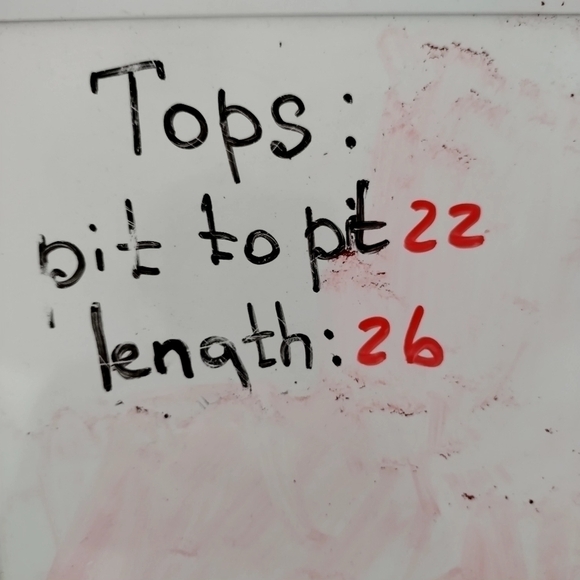 Tops:
pit to pit 22
length: 26